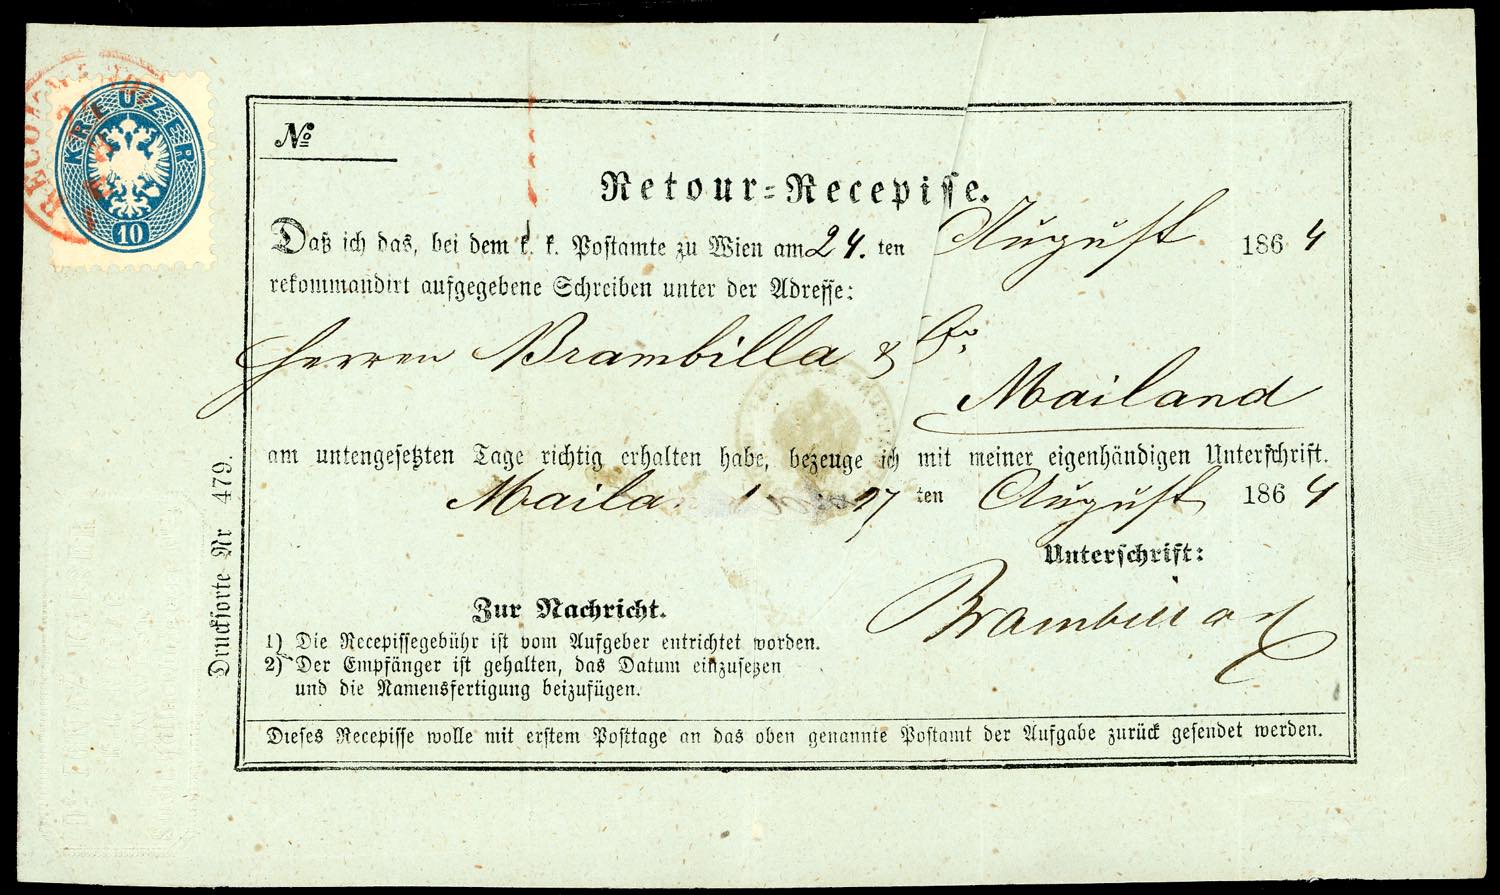 KREUZER
10
RECOM
No
Retour=Recepisse.
Daß ich das, bei dem k. k. Postamte zu Wien am 24. ten August 1864
rekommandirt aufgegebene Schreiben unter der Adresse:
Herren Brambilla & Co.
Mailand
am untengesetzten Tage richtig erhalten habe, bezeuge ich mit meiner eigenhändigen Unterschrift.
Maila 27 ten August 1864
Unterschrift:
Brambilla
Zur Nachricht.
1) Die Recepissegebühr ist vom Aufgeber entrichtet worden.
2) Der Empfänger ist gehalten, das Datum einzusetzen
und die Namensfertigung beizufügen.
Dieses Recepisse wolle mit erstem Posttage an das oben genannte Postamt der Aufgabe zurück gesendet werden.
Drucksorte Nr 479.